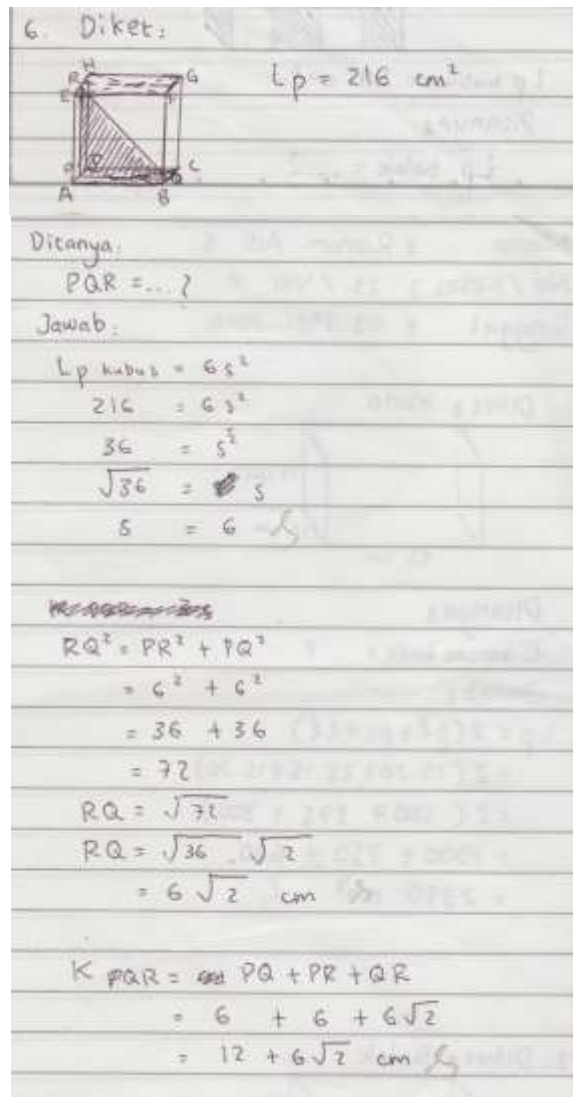 6. Diket:
Lp = 216 cm²
H
R G
E F
P D C
Q
A B
Ditanya:
PQR = ... ?
Jawab:
Lp kubus = 6s²
216 = 6s²
36 = s²
√36 = s
s = 6
RQ² = PR² + PQ²
= 6² + 6²
= 36 + 36
= 72
RQ = √72
RQ = √36 √2
= 6√2 cm
K PQR = PQ + PR + QR
= 6 + 6 + 6√2
= 12 + 6√2 cm